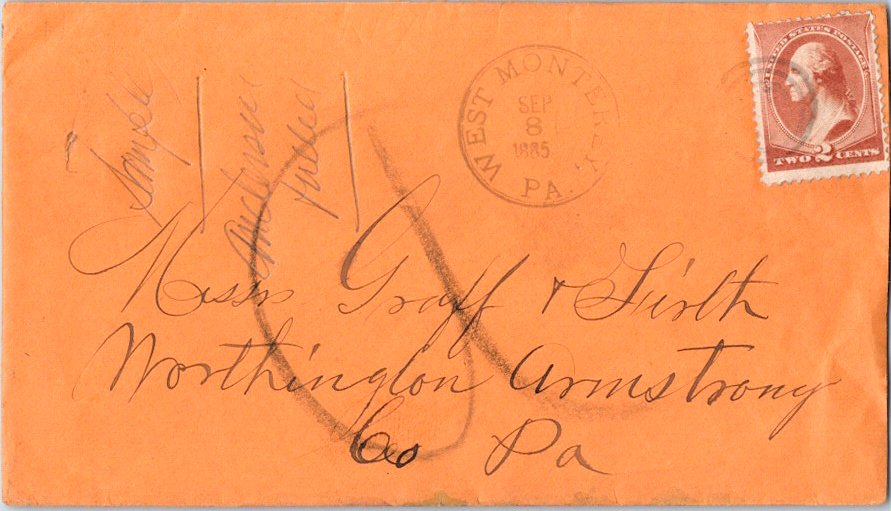 UNITED STATES POSTAGE
TWO 2 CENTS
WEST MONTEREY,
SEP
8
1885
PA.
Sample
Messrs Graff & Firth
Worthington Armstrong
Co Pa